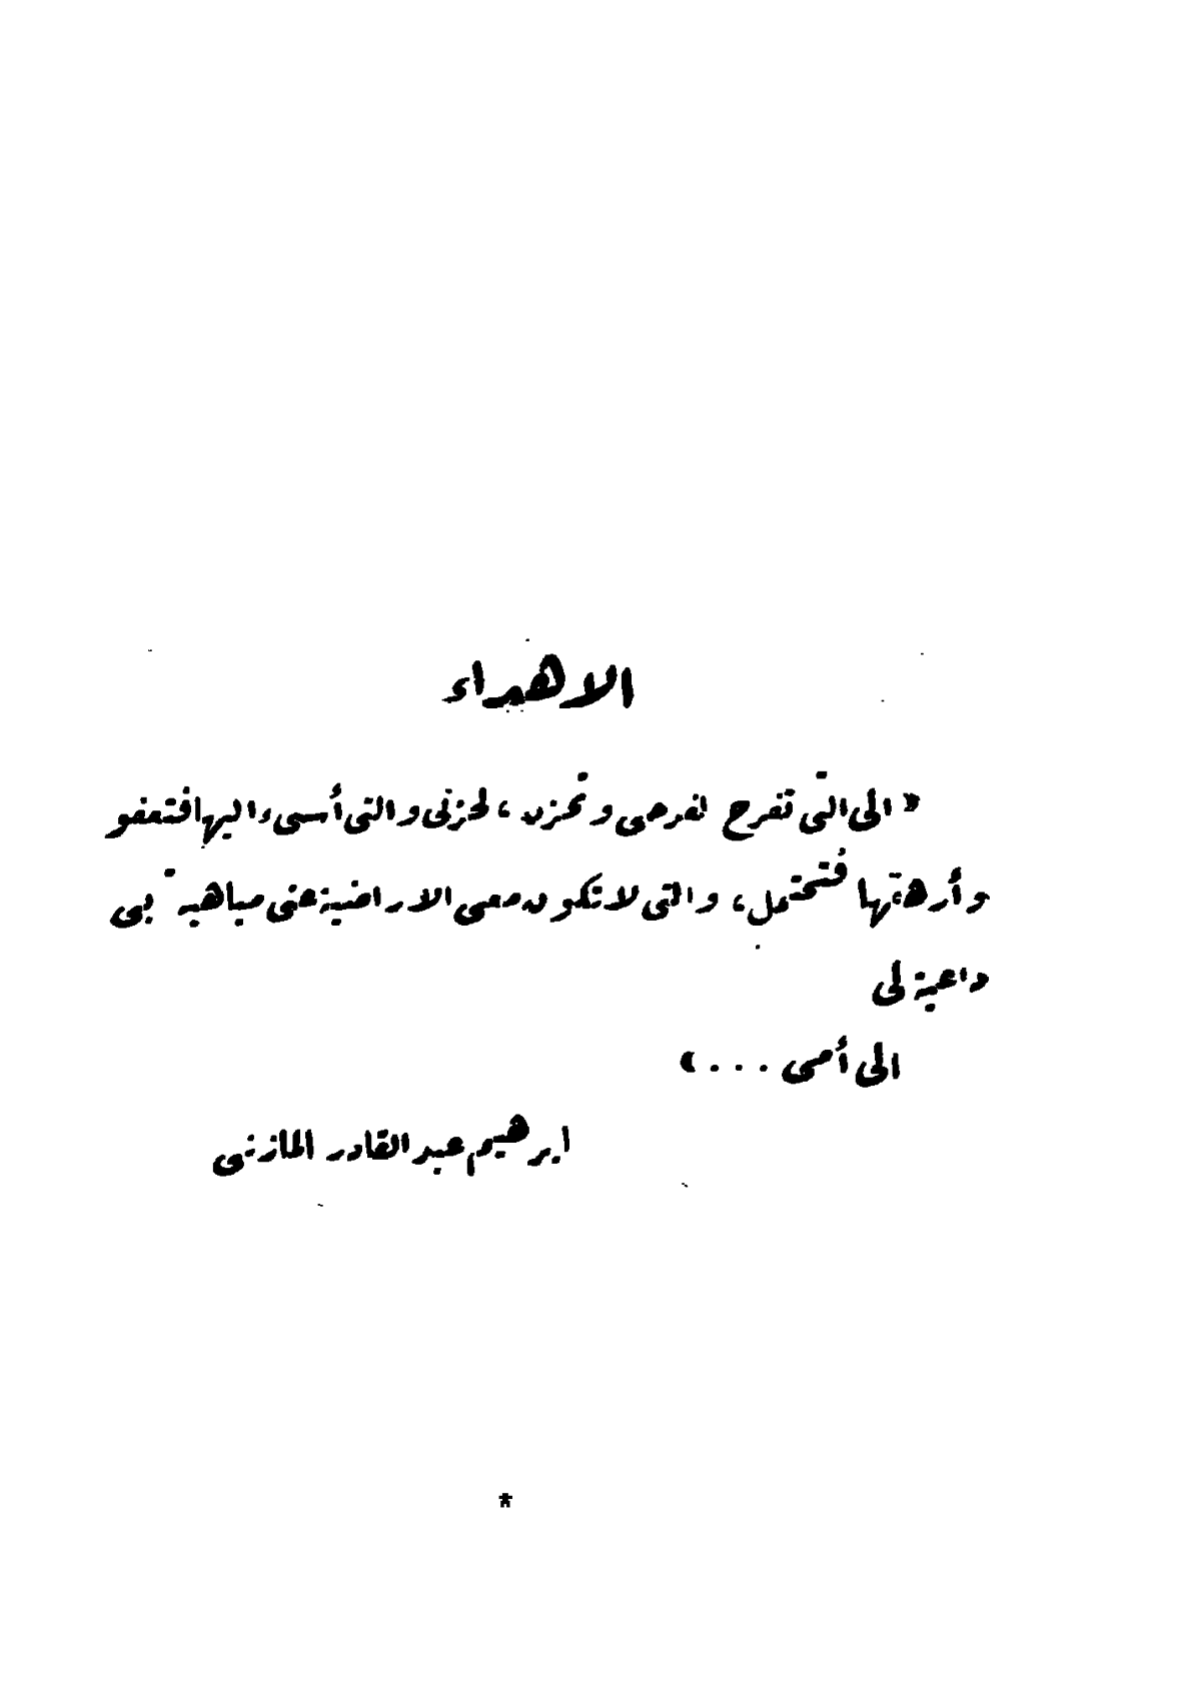 الاهداء
« الى التى تفرح لفرحى وتحزن ، لحزنى والتى أسىء اليها فتعفو
وأرهقها فتحتمل ، والتى لا تكون معى الا راضية عنى مباهية بى
داعية لى
الى أمى . . . »
ابرهيم عبد القادر المازنى
*